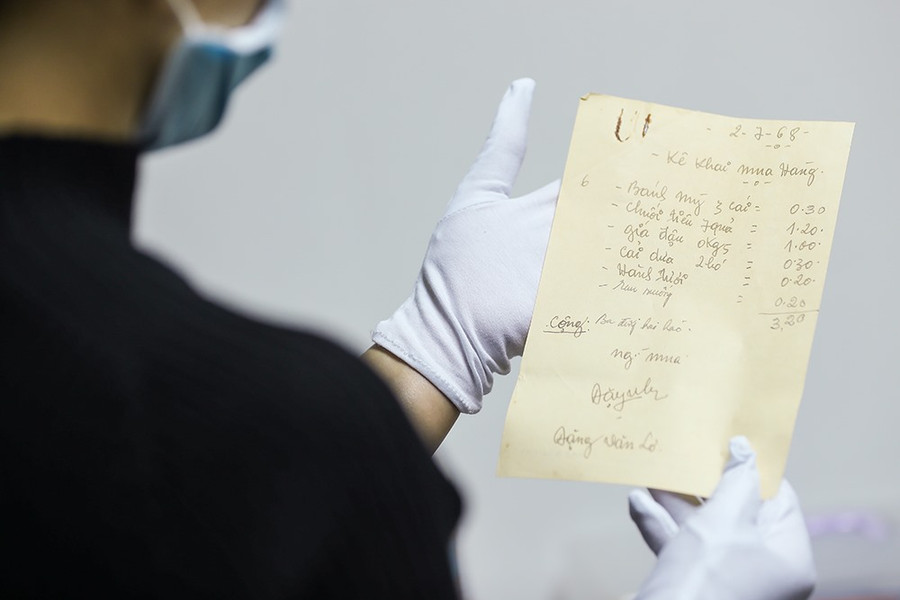 - 2-7-68 -
- Kê Khai mua Hàng.
6 - Bánh mỳ 3 cái = 0.30
- Chuối tiêu 7 quả = 1.20.
- giá đậu 0kg5 = 1.00.
- cải dưa 2 bó = 0.30.
- Hành tươi = 0.20.
- rau muống = 0.20
3,20
Cộng: Ba đồng hai hào.
ngˈ mua
Đặng Văn Lơ.